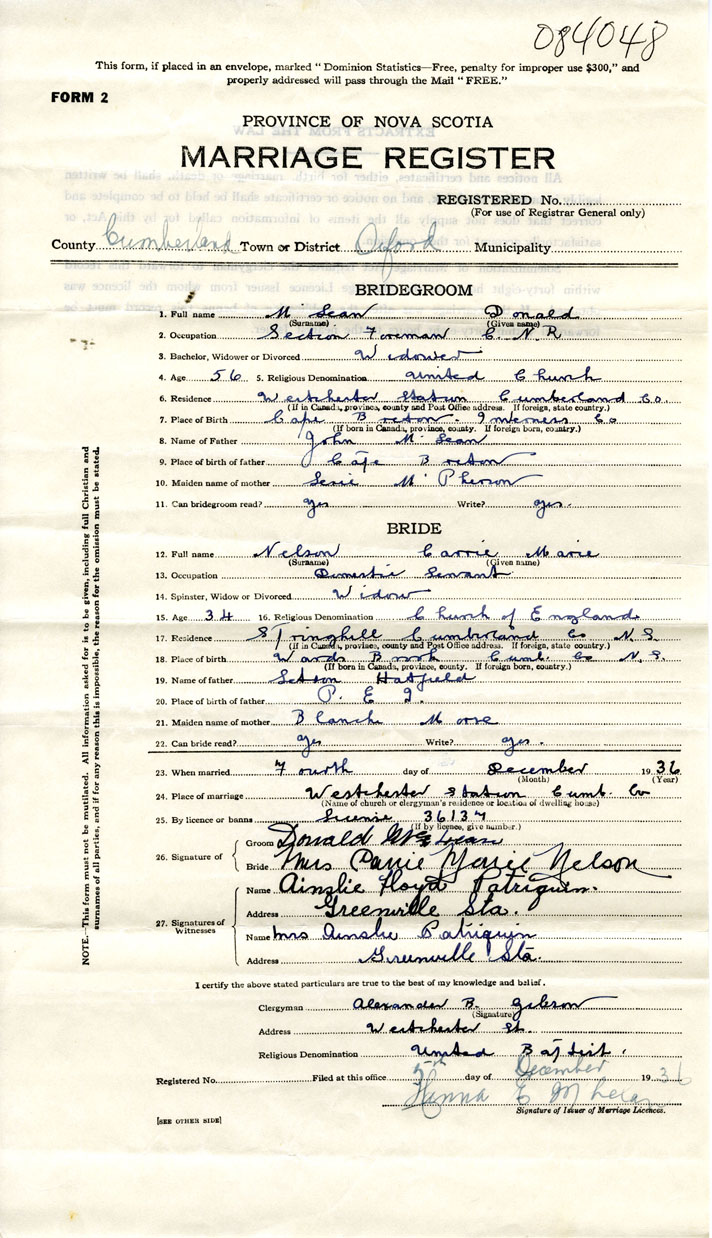 084048
This form, if placed in an envelope, marked "Dominion Statistics—Free, penalty for improper use $300," and
properly addressed will pass through the Mail "FREE."
FORM 2
PROVINCE OF NOVA SCOTIA
MARRIAGE REGISTER
REGISTERED No.
(For use of Registrar General only)
County Cumberland Town or District Oxford Municipality
BRIDEGROOM
1. Full name McLean Donald
(Surname) (Given name)
2. Occupation Section Foreman C. N. R
3. Bachelor, Widower or Divorced Widower
4. Age 56 5. Religious Denomination United Church
6. Residence Westchester Station Cumberland Co.
(If in Canada, province, county and Post Office address. If foreign, state country.)
7. Place of Birth Cape Breton Inverness Co
(If born in Canada, province, county. If foreign born, country.)
8. Name of Father John McLean
9. Place of birth of father Cape Breton
10. Maiden name of mother McPherson
11. Can bridegroom read? yes Write? yes.
BRIDE
12. Full name Nelson Carrie Marie
(Surname) (Given name)
13. Occupation Domestic Servant
14. Spinster, Widow or Divorced Widow
15. Age 34 16. Religious Denomination Church of England
17. Residence Springhill Cumberland Co N.S.
(If in Canada, province, county and Post Office address. If foreign, state country.)
18. Place of birth Wards Brook Cumb. Co N.S.
(If born in Canada, province, county. If foreign born, country.)
19. Name of father Hatfield
20. Place of birth of father P. E I.
21. Maiden name of mother Blanche
22. Can bride read? yes Write? yes.
23. When married Fourth day of December 1936
(Month) (Year)
24. Place of marriage Westchester Station Cumb. Co
(Name of church or clergyman's residence or location of dwelling house)
25. By licence or banns License 36137
(If by licence, give number.)
26. Signature of
Groom Donald McLean
Bride Mrs Carrie Marie Nelson
27. Signatures of Witnesses
Name Ainslie Floyd Patriquin.
Address Greenville Sta.
Name Mrs Ainslie Patriquin
Address Greenville Sta.
I certify the above stated particulars are true to the best of my knowledge and belief.
Clergyman Alexander B. Gibson
(Signature)
Address Westchester St.
Religious Denomination United Baptist.
Registered No. Filed at this office 5th day of December 1936
E McLean
Signature of Issuer of Marriage Licences.
[SEE OTHER SIDE]
NOTE.—This form must not be mutilated. All information asked for is to be given, including full Christian and
surnames of all parties, and if for any reason this is impossible, the reason for the omission must be stated.